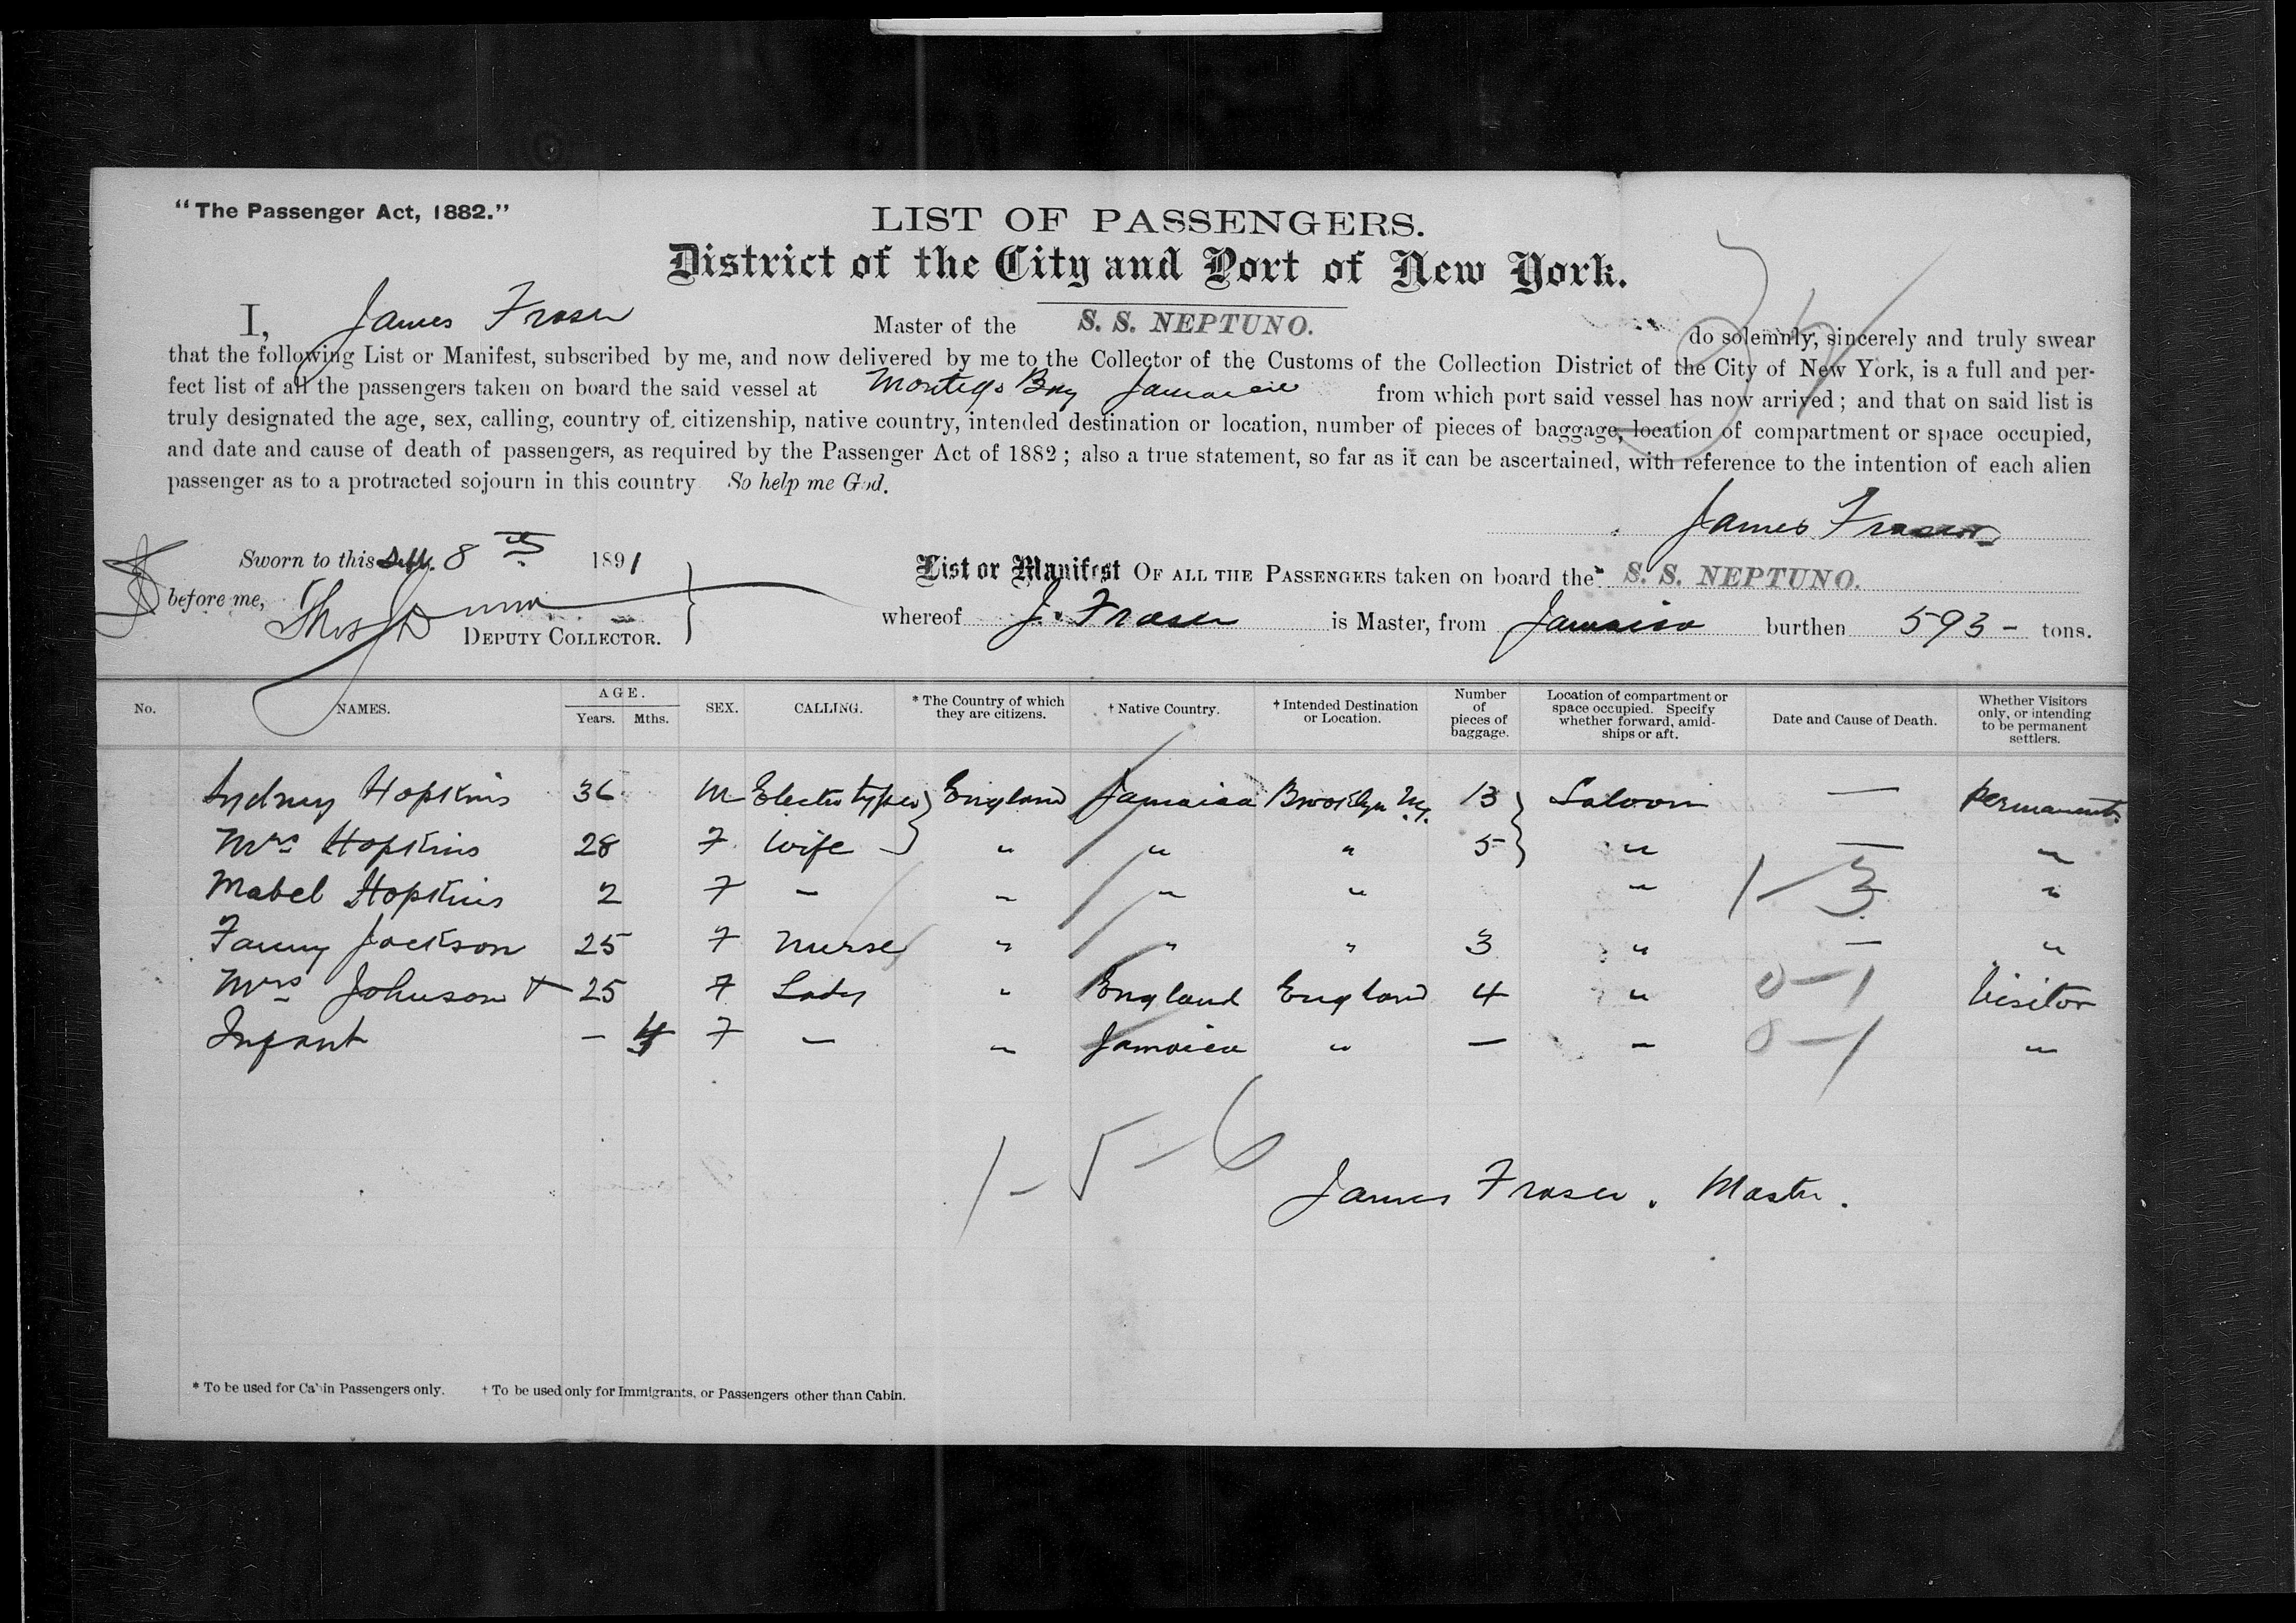 "The Passenger Act, 1882."
LIST OF PASSENGERS.
District of the City and Port of New York.
I, James Fraser Master of the S. S. NEPTUNO. do solemnly, sincerely and truly swear
that the following List or Manifest, subscribed by me, and now delivered by me to the Collector of the Customs of the Collection District of the City of New York, is a full and per-
fect list of all the passengers taken on board the said vessel at Montego Bay Jamaica from which port said vessel has now arrived; and that on said list is
truly designated the age, sex, calling, country of citizenship, native country, intended destination or location, number of pieces of baggage, location of compartment or space occupied,
and date and cause of death of passengers, as required by the Passenger Act of 1882; also a true statement, so far as it can be ascertained, with reference to the intention of each alien
passenger as to a protracted sojourn in this country So help me God.
James Fraser
Sworn to this Sept. 8th 1891
before me, Thos Dunn
DEPUTY COLLECTOR.
List or Manifest OF ALL THE PASSENGERS taken on board the S. S. NEPTUNO.
whereof J. Fraser is Master, from Jamaica burthen 593 - tons.
No. NAMES. AGE. Years. Mths. SEX. CALLING. * The Country of which they are citizens. † Native Country. † Intended Destination or Location. Number of pieces of baggage. Location of compartment or space occupied. Specify whether forward, amid-ships or aft. Date and Cause of Death. Whether Visitors only, or intending to be permanent settlers.
Sydney Hopkins 36 M Electrotyper England Jamaica Brooklyn N.Y. 13 Saloon — permanent
Mrs Hopkins 28 F Wife " " " 5 " — "
Mabel Hopkins 2 F — " " " " 1-3 "
Fanny Jackson 25 F Nurse " " " 3 " — "
Mrs Johnson + 25 F Lady " England England 4 " 0-1 Visitor
Infant — 4 F — " Jamaica " — — 0-1 "
1-5-6
James Fraser. Master.
* To be used for Cabin Passengers only. † To be used only for Immigrants, or Passengers other than Cabin.